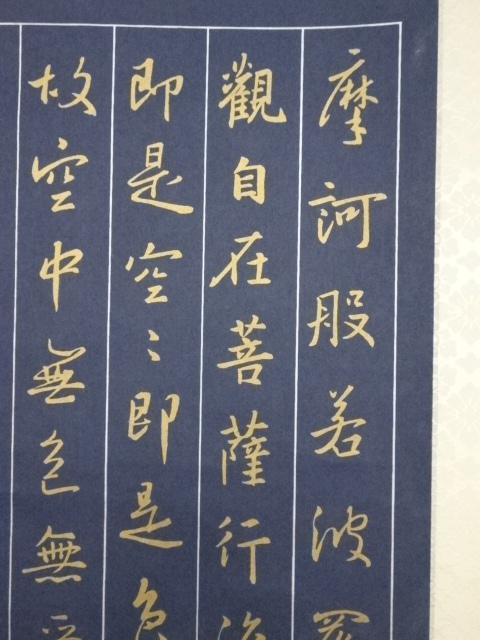 摩訶般若波
觀自在菩薩行
即是空〻即是色
故空中無色無